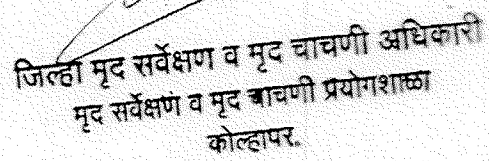 जिल्हा मृद सर्वेक्षण व मृद चाचणी अधिकारी
मृद सर्वेक्षण व मृद चाचणी प्रयोगशाळा
कोल्हापर.